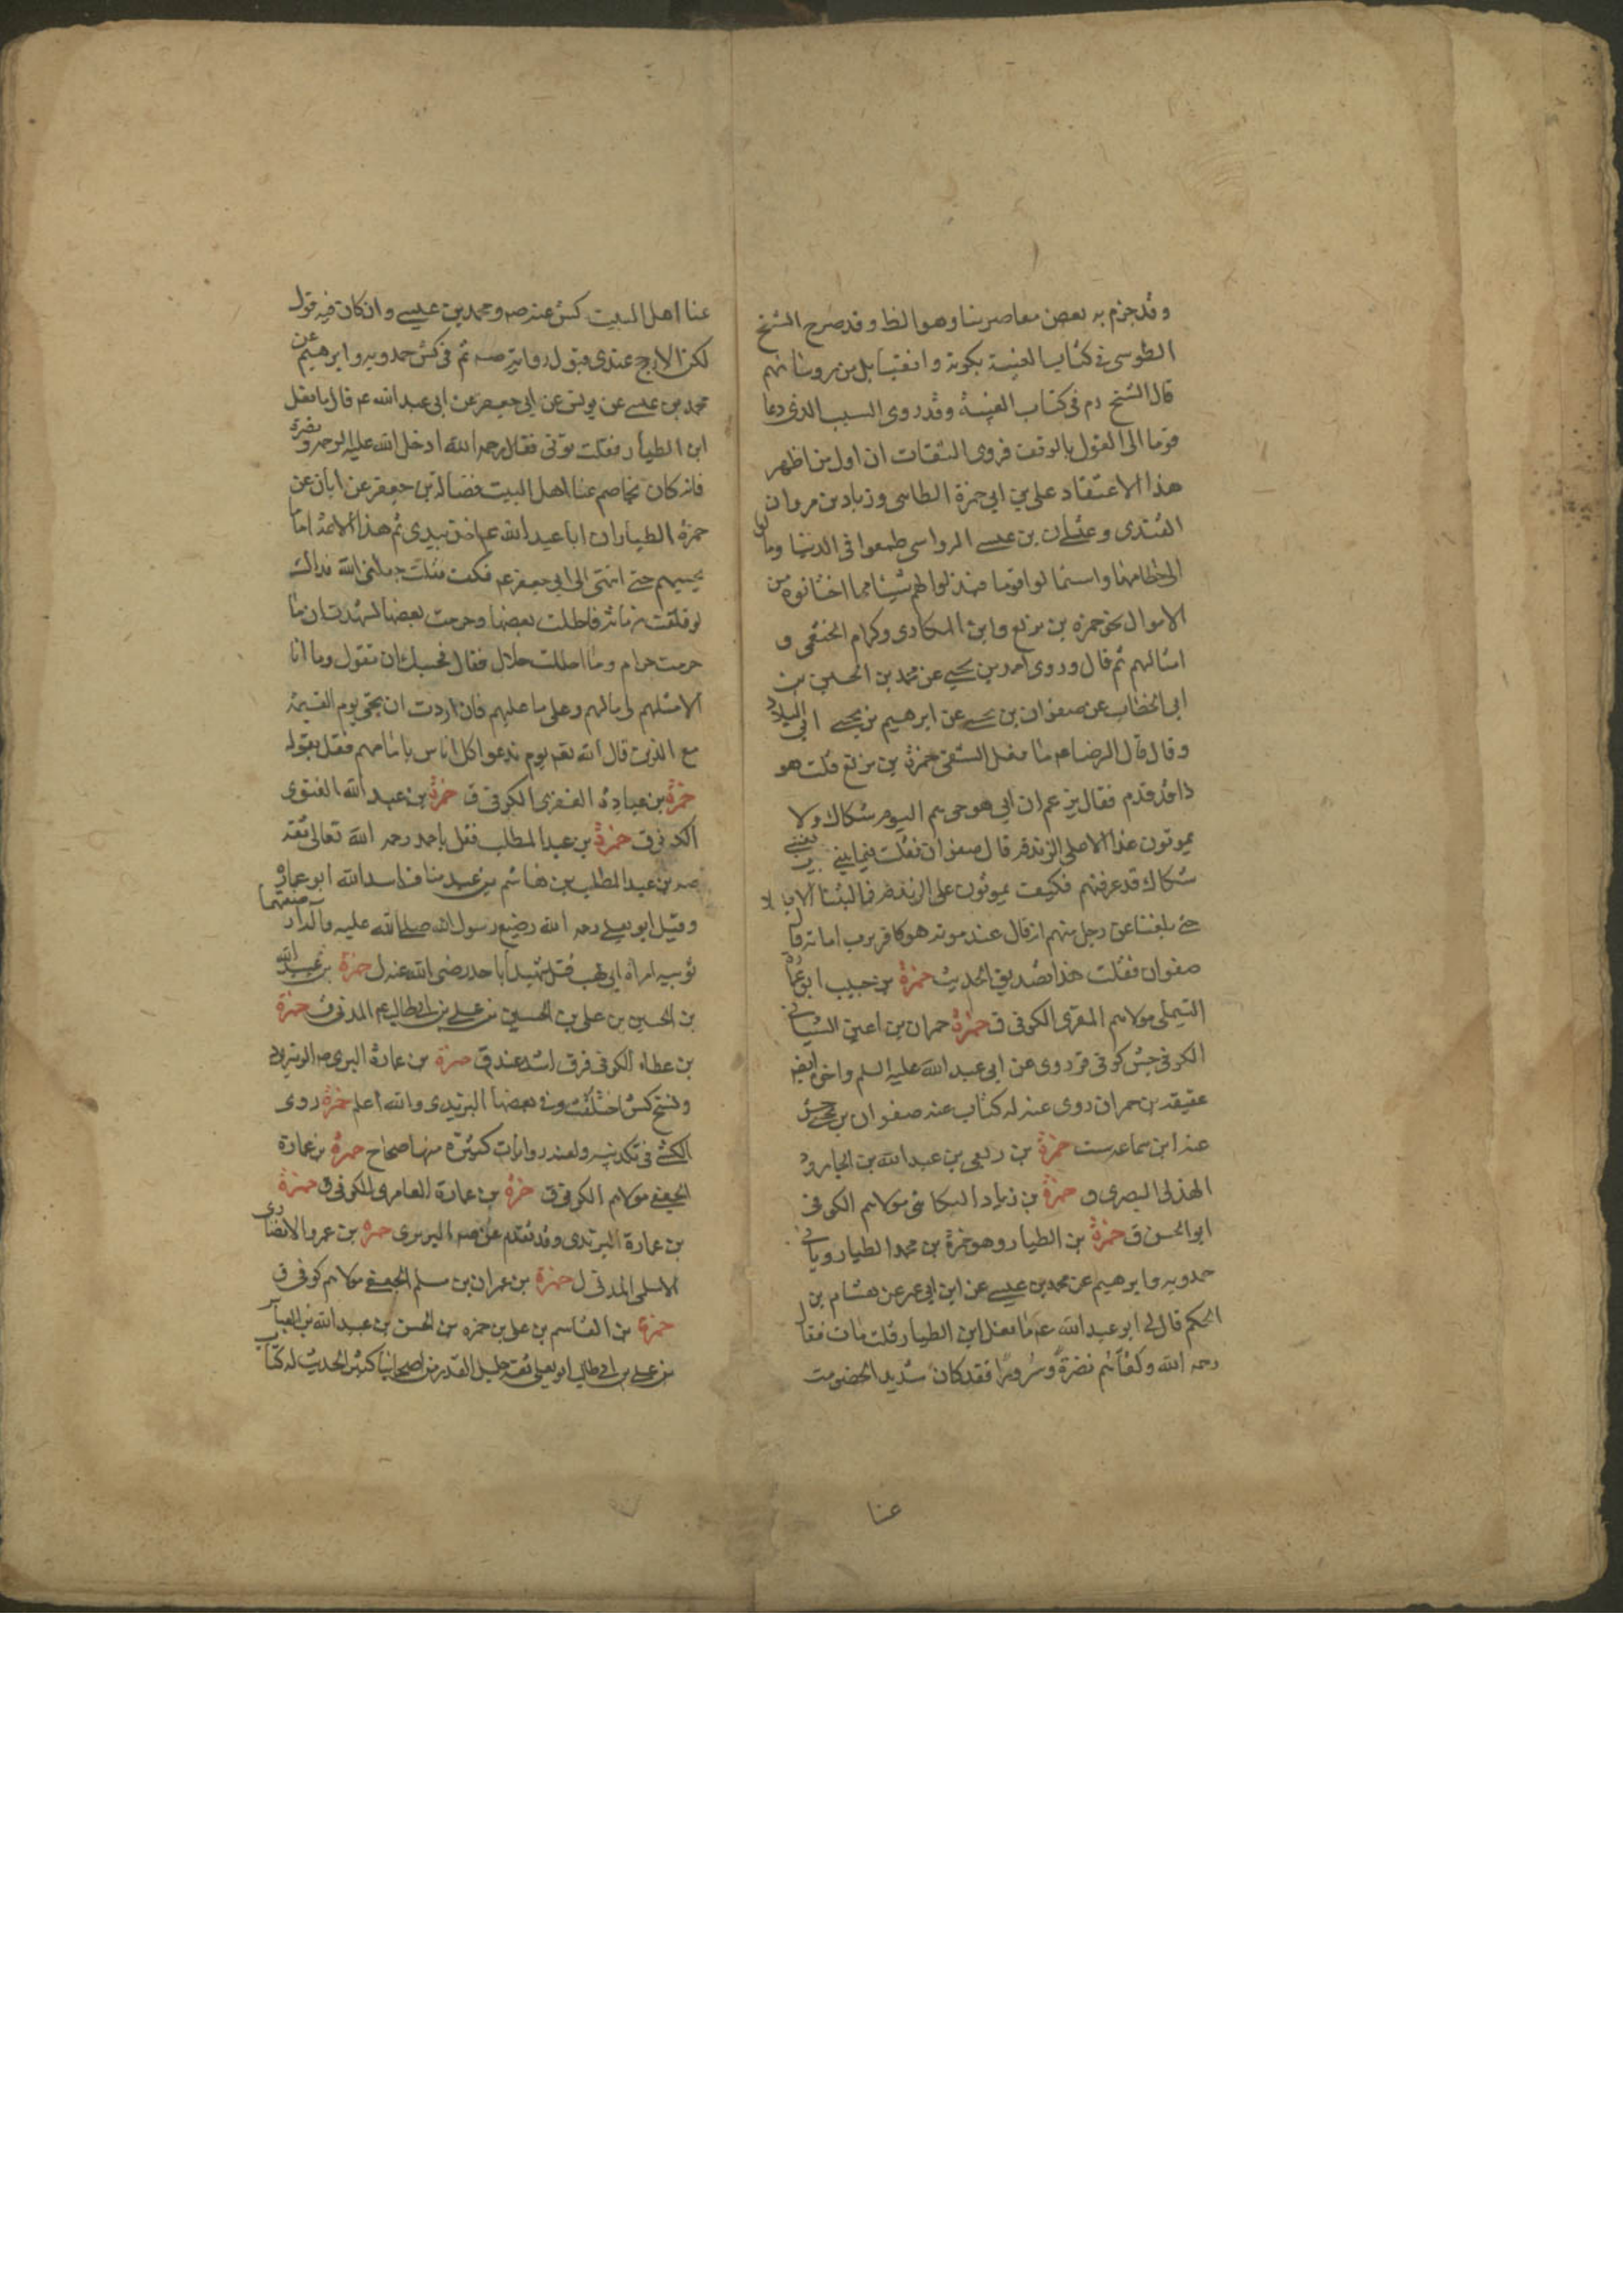 وقد جزم به بعض معاصرينا وهو الظ وقد صرح الشيخ
الطوسي في كتاب الغيبة بكونه واقفيا بل من رؤسائهم
قال الشيخ ره في كتاب الغيبة وقد روى السبب الذى دعا
قوما الى القول بالوقف فروى الثقات ان اول من اظهر
هذا الاعتقاد على بن ابي حمزة الطاسى وزياد بن مروان
القندى وعثمان بن عيسى الرواسى طمعوا في الدنيا ومالوا
الى حطامها واستمالوا قوما فبذلوا لهم شيئا مما اختانوه من
الاموال نحو حمزه بن بزيع وابن المكارى وكرام الخثعمى و
امثالهم ثم قال وروى احمد بن يحيى عن محمد بن الحسين بن
ابى الخطاب عن صفوان بن يحيى عن ابرهيم بن يحيى ابى البلاد
وقال قال الرضا ع ما فعل الشقى حمزة بن بزيع قلت هو
ذا هو قد قدم فقال يزعم ان ابي هو حى هم اليوم شكاك ولا
يموتون غدا الا على الزندقة قال صفوان فقلت فيما بينى وبين نفسى
شكاك قد عرفتهم فكيف يموتون على الزندقة فما لبثنا الا قليلا
حتى بلغنا عن رجل منهم انه قال عند موته هو كافر برب اماته قال
صفوان فقلت هذا تصديق الحديث حمزة بن حبيب ابو عمارة
التيملى مولاهم المقرى الكوفى ق حمزة حمران بن اعين الشيبانى
الكوفى جش كوفى ق روى عن ابى عبد الله عليه السلم واخوه ايضا
عقيقه بن حمران روى عنه له كتاب عنه صفوان بن يحيى جش
عنه ابن سماعه ست حمزة بن ربعى بن عبد الله بن الجارود
الهذلى البصرى ق حمزة بن زياد البكائى مولاهم الكوفى
ابو الحسن ق حمزة بن الطيار وهو حمزة بن محمد الطيار ويأتى
حمدويه وابرهيم عن محمد بن عيسى عن ابن ابى عمر عن هشام بن
الحكم قال لى ابو عبد الله ع ما فعل ابن الطيار قلت مات فقال
رحمه الله ولقاهم نضرة وسرورا فقد كان شديد الخصومت
عنا
عنا اهل البيت كش عنه صه ومحمد بن عيسى وان كان فيه قول
لكن الارجح عندى قبول روايته صه ثم فى كش حمدويه وابرهيم عن
محمد بن عيسى عن يونس عن ابى جعفر عن ابى عبد الله ع قال ما فعل
ابن الطيار فقلت توفى فقال رحمه الله ادخل الله عليه الرحمه ونضرة
فانه كان يخاصم عنا اهل البيت فضالة بن جعفر عن ابان عن
حمزة الطيار ان ابا عبد الله ع اخذ بيدى ثم هذا الائمة اماما
يحييهم حتى انتهى الى ابى جعفر ع فكف فقلت جعلنى الله فداك
لو فلقت رمانة فاحللت بعضها وحرمت بعضها لشهدت ان ما
حرمت حرام وما احللت حلال فقال فحسبك ان تقول وما انا
الا مثلهم لى مالهم وعلى ما عليهم فان اردت ان تجئ يوم القيمة
مع الذين قال الله تعم يوم ندعوا كل اناس بامامهم فقل بقوله
حمزة بن عباده العنزى الكوفى ق حمزة بن عبد الله الغنوى
الكوفى ق حمزة بن عبد المطلب قتل باحد رحمه الله تعالى ثقة
صه بن عبد المطلب بن هاشم بن عبد مناف اسد الله ابو عماره
وقيل ابو يعلى رحمه الله رضيع رسول الله صلى الله عليه واله ارضعتهما
ثويبه امراة ابى لهب قتل شهيدا باحد رضى الله عنه ل حمزة بن عبد الله
بن الحسين بن على بن الحسين بن على بن ابى طالب ع المدنى ق حمزة
بن عطاء الكوفى ق حمزة بن عمارة
ونسخ كش اختلفت وفى بعضها البزيدى والله اعلم حمزة روى
الكشى فى تكذيبه ولعنه روايات كثيرة منها صحاح حمزة بن عمارة
الجعفى مولاهم الكوفى ق حمزة بن عمارة العامرى الكوفى ق حمزة
بن عمارة اليزيدى وقد تقدم عن صه البربرى حمزه بن عمرو الانصارى
الاسلمى المدنى ل حمزة بن عمران بن مسلم الجعفى مولاهم كوفى ق
حمزة بن القاسم بن على بن حمزه بن الحسن بن عبد الله بن العباس
بن على بن ابى طالب ابو يعلى ثقة جليل القدر من اصحابنا كثير الحديث له كتاب